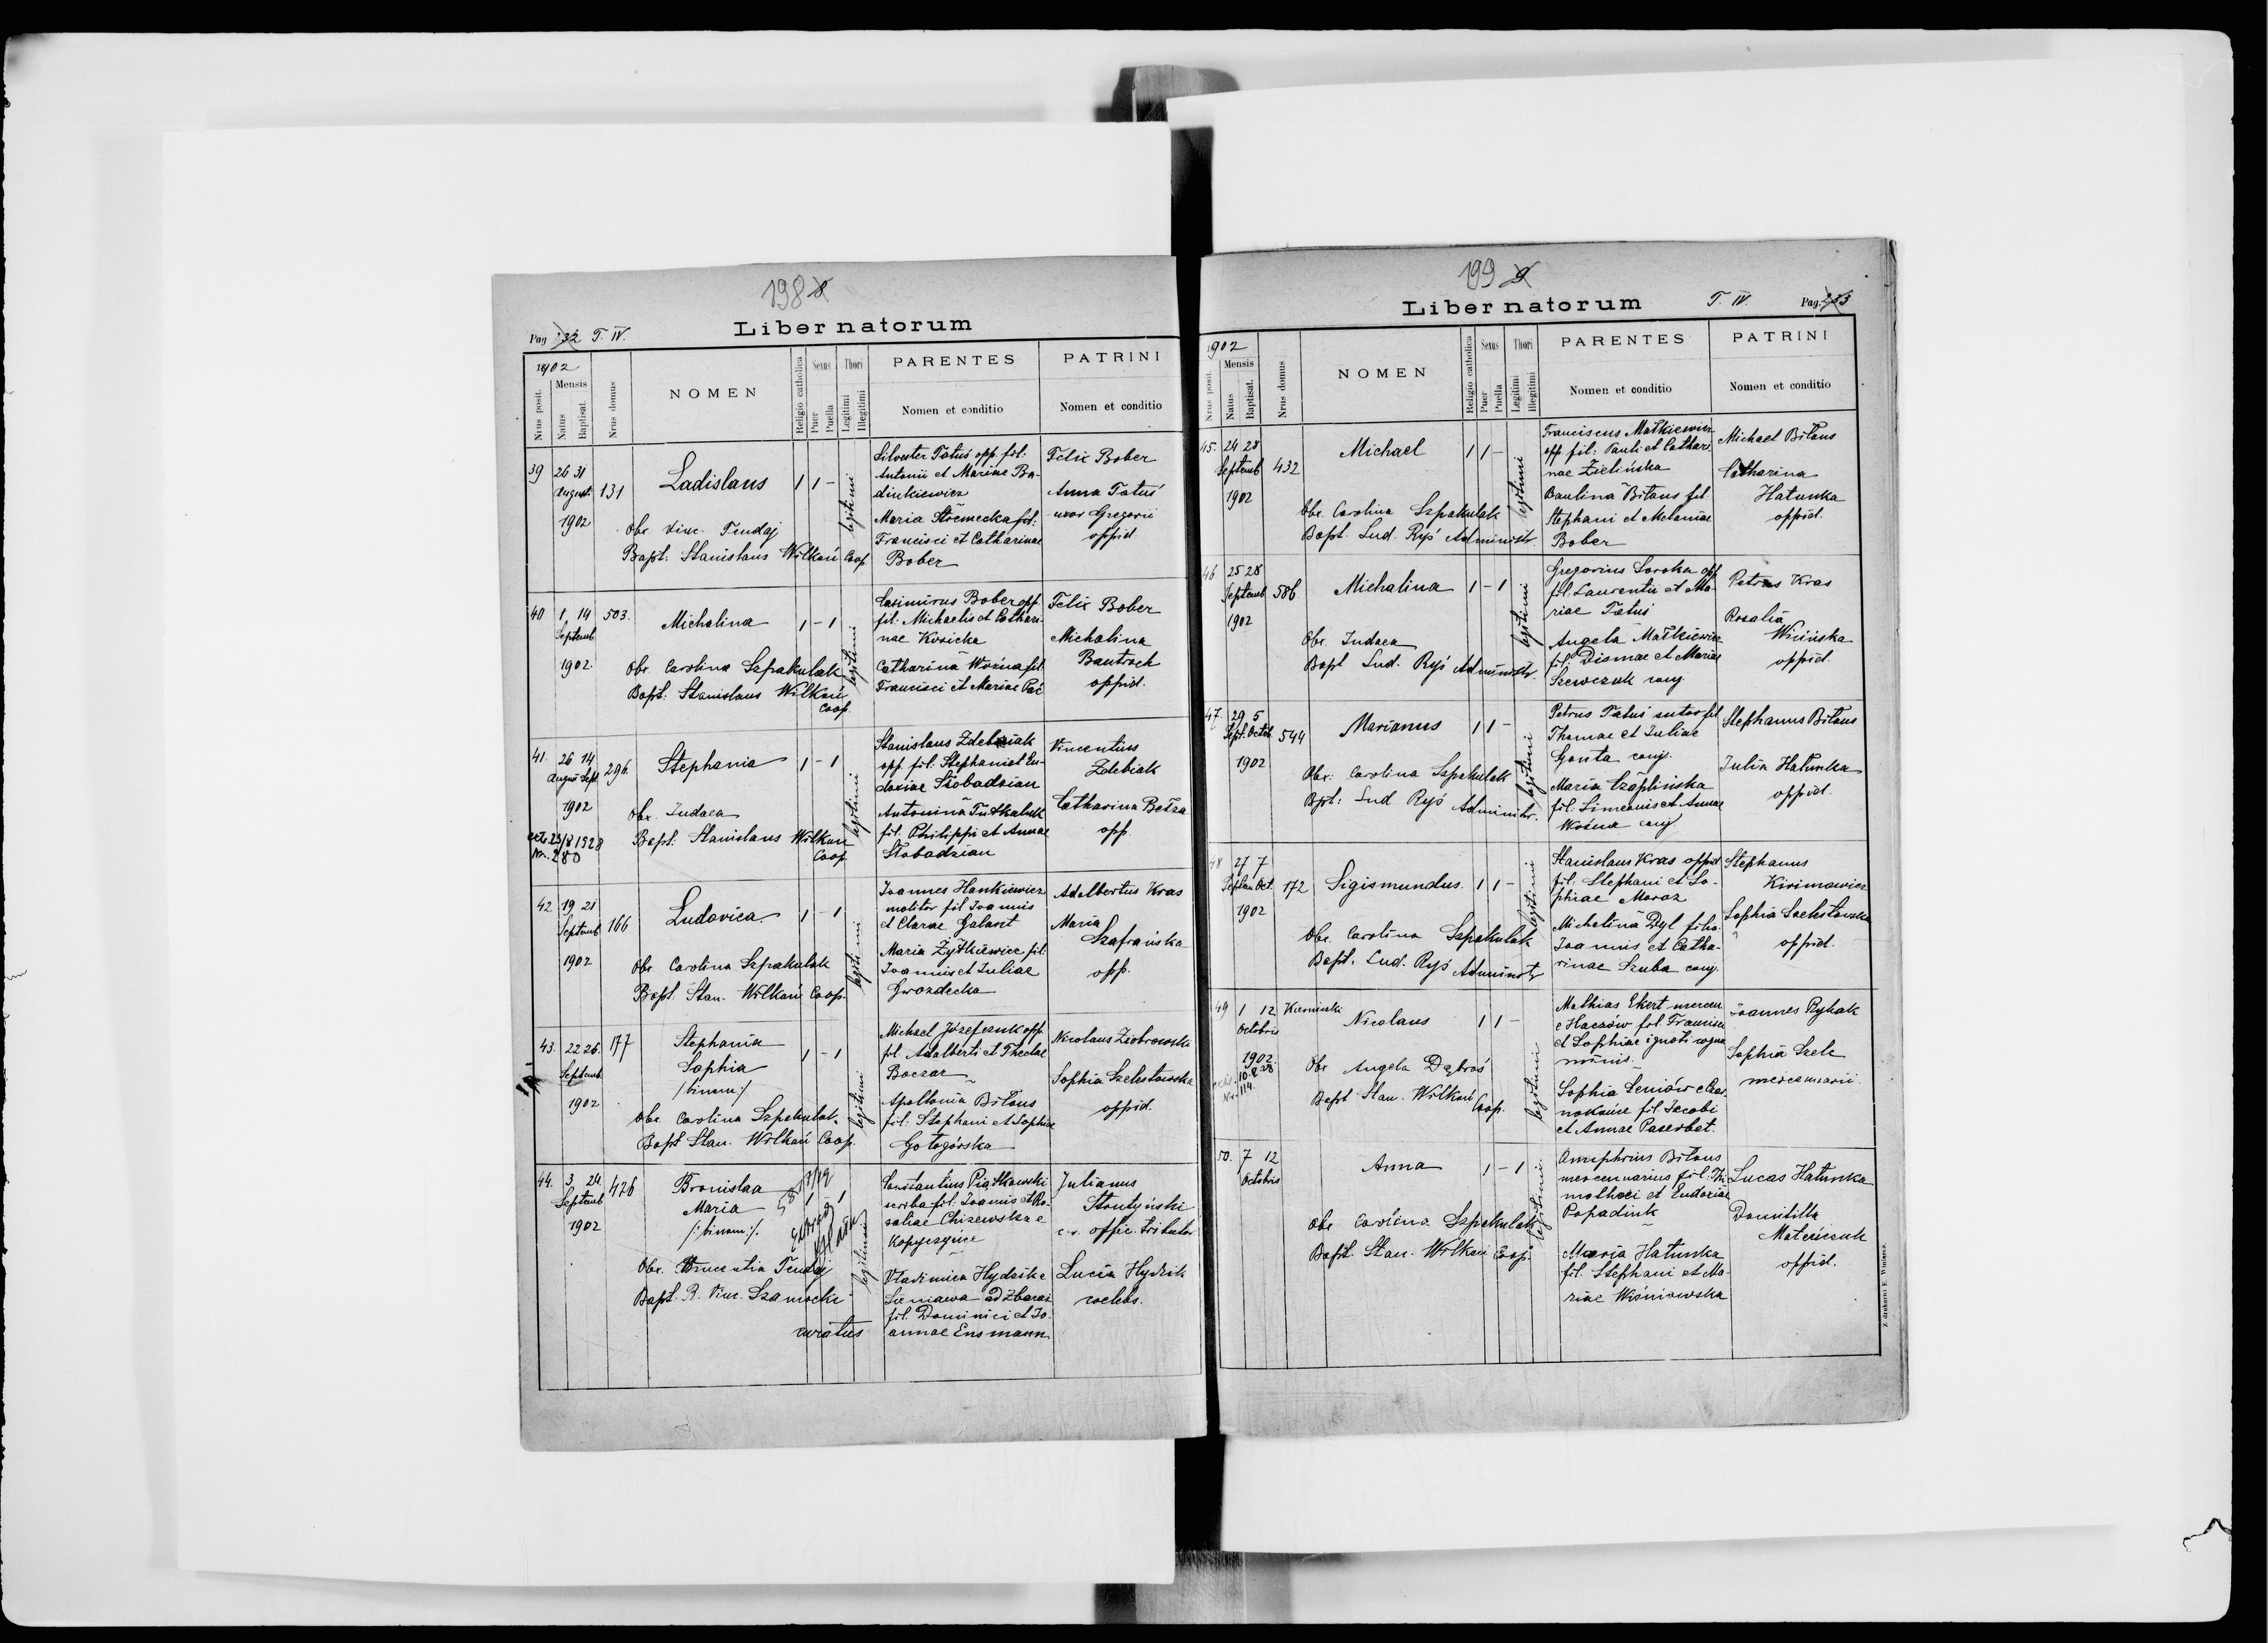 198
Liber natorum
Pag 232 T. IV.
1902
Nrus posit.
Mensis
Natus
Baptisat.
Nrus domus
NOMEN
Religio catholica
Sexus
Puer
Puella
Thori
Legitimi
Illegitimi
PARENTES
Nomen et conditio
PATRINI
Nomen et conditio
39 26 31
August. 131
1902
Ladislaus 1 1 -
legitimi
Obs. Vinc. Tendaj
Bapt. Stanislaus Wilkoń Coop.
Silvester Tatuś opp. fil:
Antonii et Mariae Ba-
diukiewicz
Maria Stremecka fil:
Francisci et Catharinae
Bober
Felix Bober
Anna Tatuś
uxor Gregorii
oppid.
40 1 14 503.
Septemb
1902.
Michalina 1 - 1
legitimi
Obs. Carolina Szpakulak
Bapt: Stanislaus Wilkoń
Coop.
Casimirus Bober opp.
fil: Michaelis et Cathari-
nae Kosicka
Catharina Woźna fil.
Francisci et Mariae Pać
Felix Bober
Michalina
Bautroch
oppid.
41. 26 14
August Sept. 296.
1902
Stephania 1 - 1
legitimi
Obs. Judaea
Bapt: Stanislaus Wilkoń
Coop
25/8 1928
Nr. 280
Stanislaus Zdebiak
opp. fil: Stephani et Eu-
doxiae Słobadzian
Antonina Tutkaluk
fil. Philippi et Annae
Słobadzian
Vincentius
Zdebiak
Catharina Bełza
opp.
42 19 21
Septemb 166
1902
Ludovica 1 - 1
legitimi
Obs. Carolina Szpakulak
Bapt. Stan. Wilkoń Coop.
Joannes Hankiewicz
molitor fil Joannis
et Clarae Galant
Maria Żytkiewicz fil:
Joannis et Juliae
Gwozdecka
Adalbertus Kras
Maria
Szafrańska
opp.
43. 22 26. 177
Septemb.
1902
Stephania
Sophia
/:binom:/
1 - 1
legitimi
Obs. Carolina Szpakulak.
Bapt Stan. Wilkoń Coop.
Michael Józefczuk opp.
fil. Adalberti et Theclae
Boczar
Apollonia Biłous
fil: Stephani et Sophiae
Gołogórska
Nicolaus Ziobrowski
Sophia Szelestowska
oppid.
44. 3 24 426
Septemb
1902
Bronislaa
Maria
/:binom:/.
legitimi
Bapt. R. Vinc. Szamocki
curatus
Constantius Piątkowski
scriba fil: Joannis et Ro-
saliae Chizewska e
Kopyczyńce
Vladimira Hydzik e
Sieniawa ad Zbaraż
fil. Dominici et Jo-
annae Ensmann
Julianus
Stoutyński
c. r. offic. tributor
Lucia Hydzik
coelebs.
199
Liber natorum
T. IV.
Pag. 233
1902
Nrus posit.
Mensis
Natus
Baptisat.
Nrus domus
NOMEN
Religio catholica
Sexus
Puer
Puella
Thori
Legitimi
Illegitimi
PARENTES
Nomen et conditio
PATRINI
Nomen et conditio
45. 24 28
Septemb 432
1902
Michael 1 1 -
legitimi
Obs. Carolina Szpakulak
Bapt. Lud. Ryś Administr.
Franciscus Małkiewicz
opp. fil: Pauli et Cathari-
nae Zielińska
Paulina Biłous fil
Stephani et Melaniae
Bober
Michael Biłous
Catharina
Hałunka
oppid.
46 25 28
Septemb 586.
1902
Michalina 1 - 1
legitimi
Obs. Judaea
Bapt Lud. Ryś Administr.
Gregorius Soroka opp
fil. Laurentii et Ma-
riae Tatuś
Angela Małkiewicz
fil. Dismae et Mariae
Szewczuk conj.
Petrus Kras
Rosalia
Wicińska
oppid.
47. 29 5
Sept. Octob 544
1902
Marianus 1 1 -
legitimi
Obs. Carolina Szpakulak
Bpt: Lud Ryś Administr.
Petrus Tatuś sutor fil
Thomae et Juliae
Gonta conj.
Maria Czaplińska
fil. Simeonis et Annae
Woźna conj.
Stephanus Biłous
Julia Hałunka
oppid.
48 27 7
Septem Oct. 172
1902
Sigismundus. 1 1 -
legitimi
Obs. Carolina Szpakulak
Bapt. Lud. Ryś Administr
Stanislaus Kras oppid
fil: Stephani et So-
phiae Moroz
Michalina Dyl filia
Joannis et Catha-
rinae Szuba conj.
Stephanus
Kirimowicz
Sophia Szelestowska
oppid.
49 1 12
Octobris
1902.
10.8.38
Nr. 114.
Nicolaus 1 1 -
legitimi
Obs Angela Dąbroś
Bapt Stan. Wilkoń
Coop.
Mathias Ekert mercen
e Haczów fil. Francisci
et Sophiae ignoti cogno
minis.
Sophia Leniów e Czar-
nokońce fil Jacobi
et Annae Paserbat.
Joannes Rybak
Sophia Szele
mercenarii.
50. 7 12
Octobris
Anna 1 - 1
legitimi
Obs Carolina Szpakulak
Bapt. Stan. Wilkoń Coop.
Onuphrius Biłous
mercenarius fil: Ti-
mothaei et Eudoxiae
Popadiuk
Maria Hałunka
fil. Stephani et Ma-
riae Wiśniowska
Lucas Hałunka
Domitilla
Matwiczuk
oppid.
Z drukarni E. Winiarza.